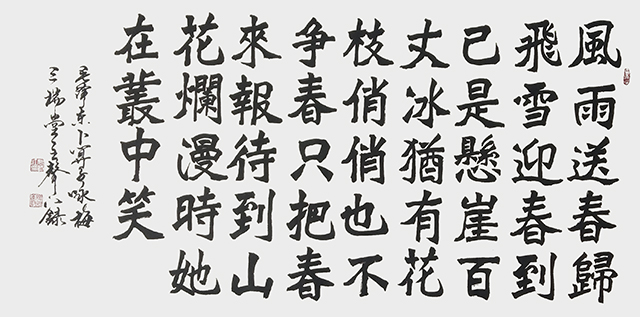 風雨送春歸
飛雪迎春到
已是懸崖百
丈冰猶有花
枝俏俏也不
争春只把春
來報待到山
花爛漫時她
在叢中笑
毛澤東卜算子咏梅
三瑞堂